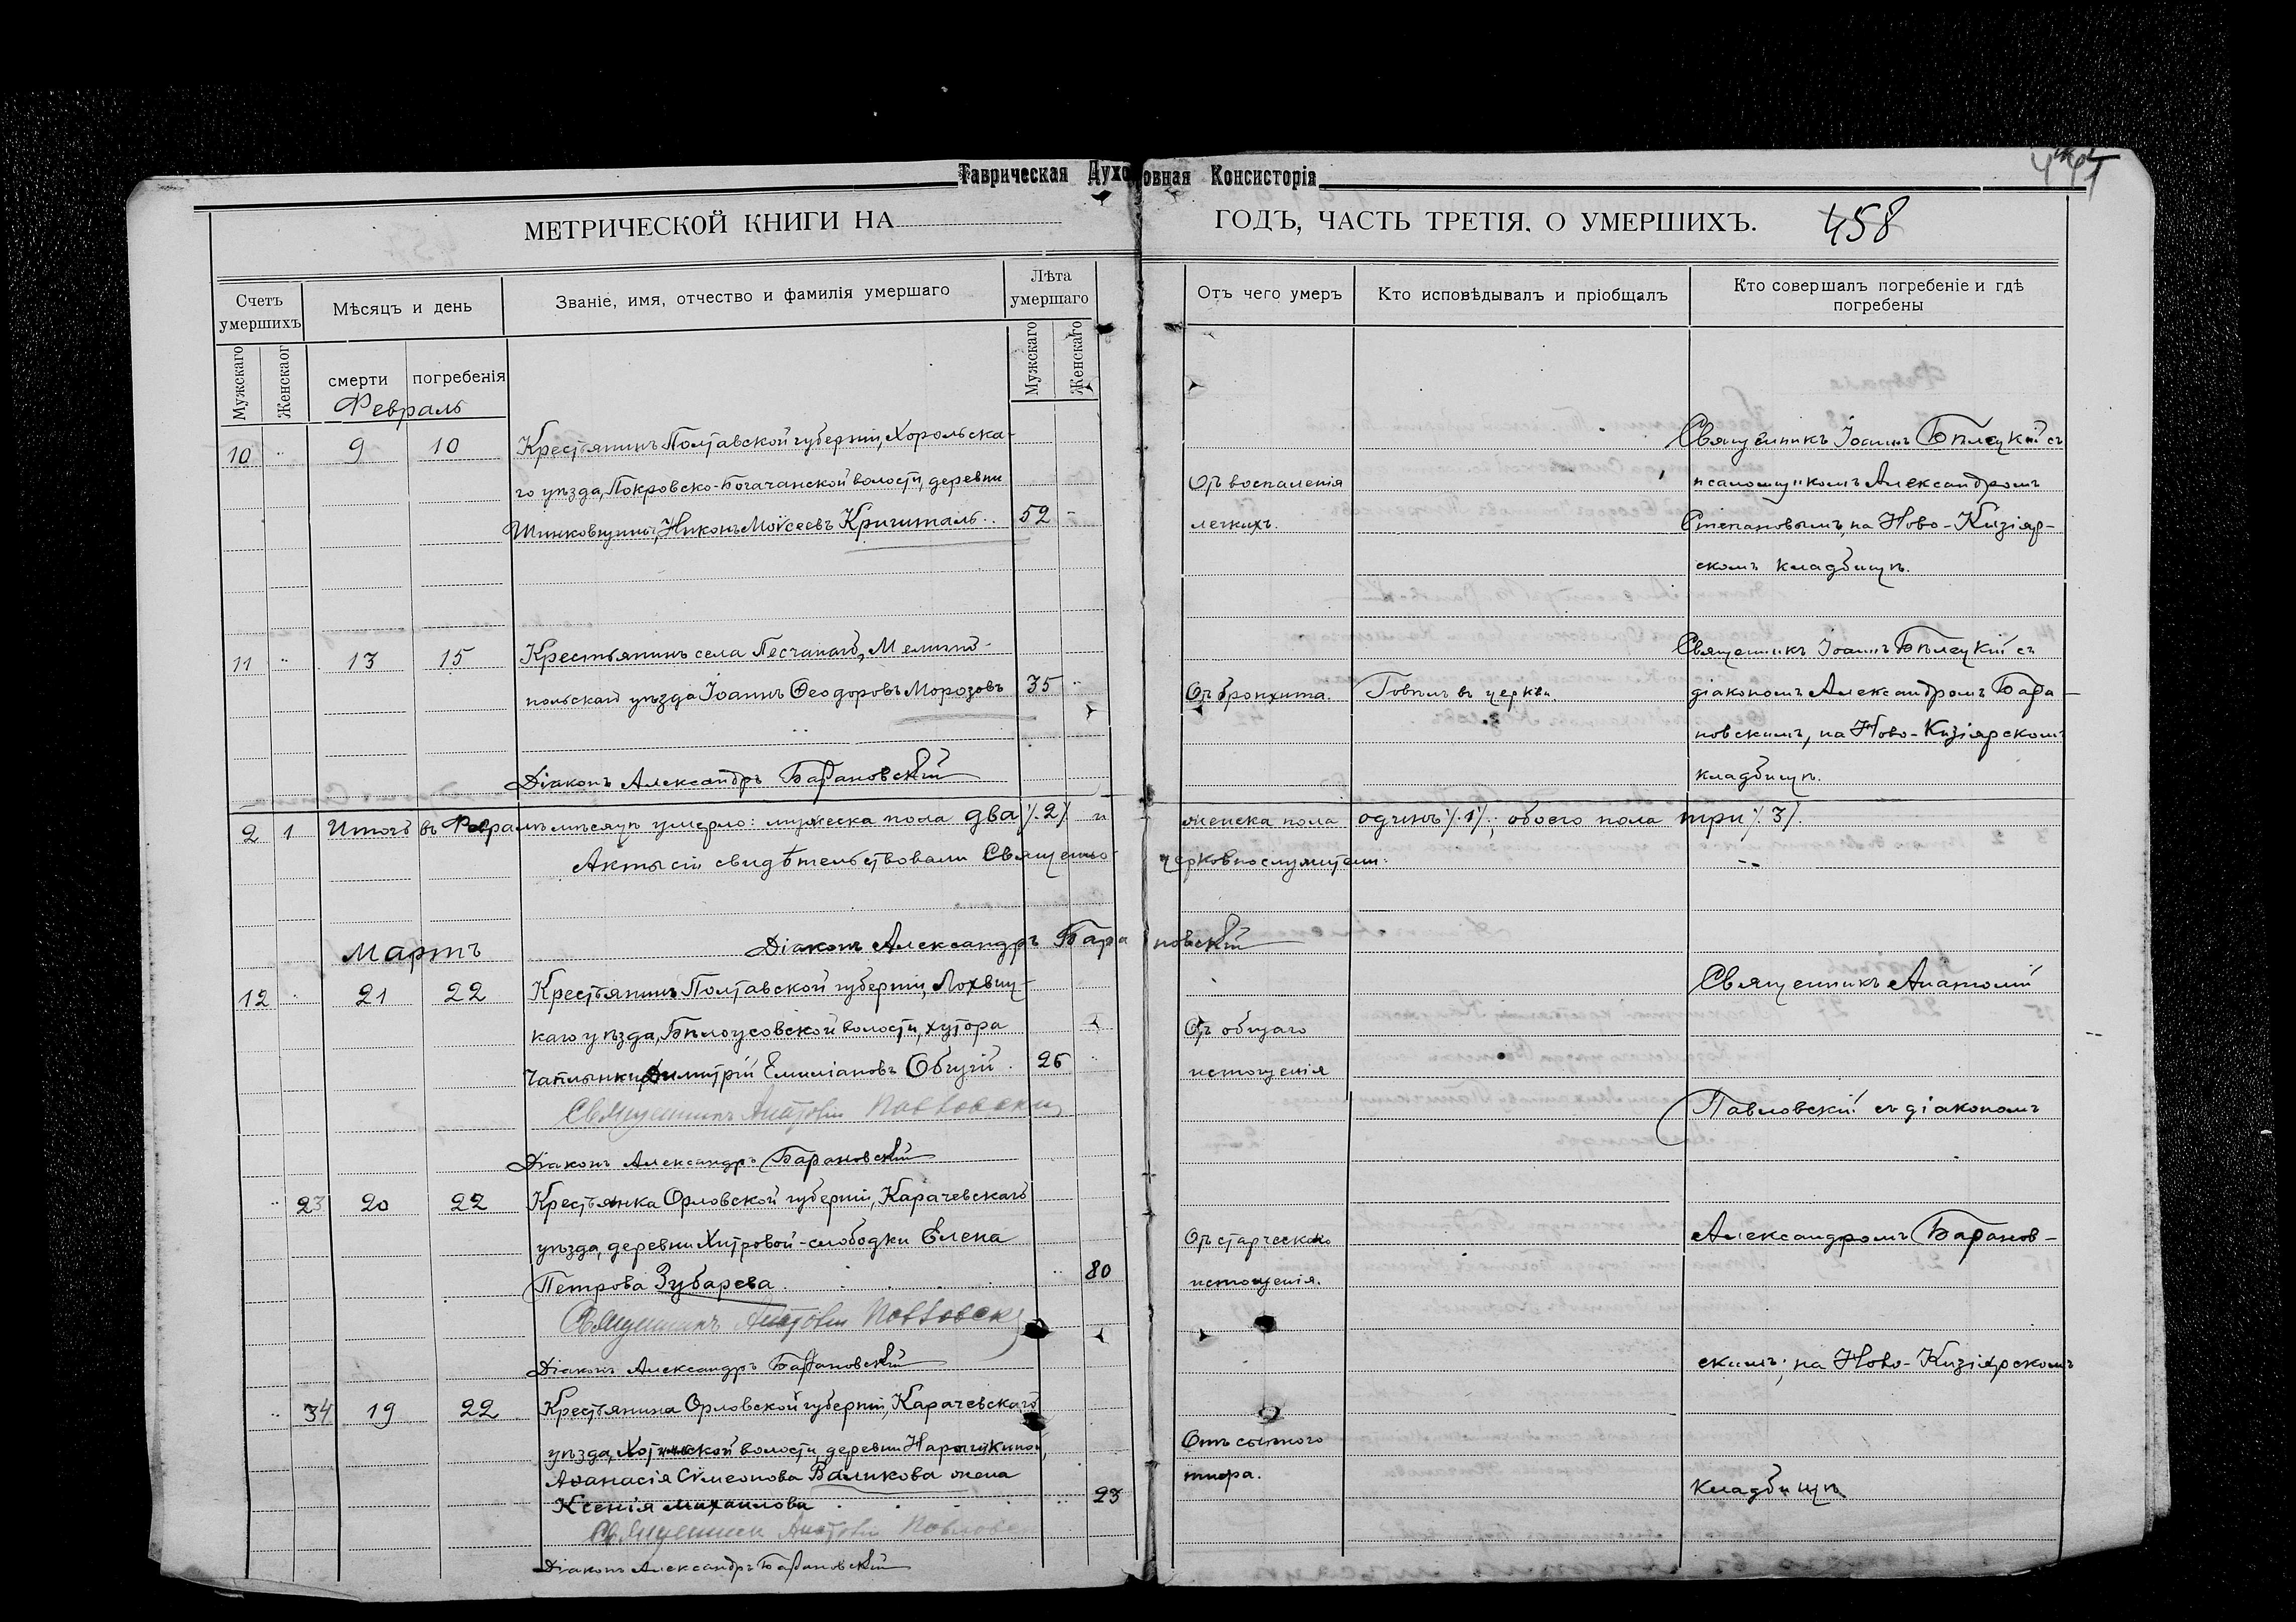 Таврическая Духовная Консисторія
МЕТРИЧЕСКОЙ КНИГИ НА ГОДЪ, ЧАСТЬ ТРЕТІЯ, О УМЕРШИХЪ. 458
Счетъ умершихъ
Мѣсяцъ и день
Званіе, имя, отчество и фамилія умершаго
Лѣта умершаго
Отъ чего умеръ
Кто исповѣдывалъ и пріобщалъ
Кто совершалъ погребеніе и гдѣ погребены
Мужскаго
Женскаог
смерти
погребенія
Мужскаго
Женскаго
Февраль
10 " 9 10 Крестьянинъ Полтавской губерніи, Хорольска- Священникъ Іоаннъ Бѣлецкій съ
го уѣзда, Покровско-Богачанской волости, деревни Отъ воспаленія псаломщикомъ Александромъ
Шинковщины, Никонъ Моѵсеевъ Кригиталь 52 - легкихъ. Степановымъ, на Ново-Кизіяр-
скомъ кладбищѣ.
11 " 13 15 Крестьянинъ села Песчанаго, Мелито- Священникъ Іоаннъ Бѣлецкій съ
польскаго уѣзда Іоаннъ Ѳеодоровъ Морозовъ 35 " Отъ бронхита. Говѣлъ въ церкви. діакономъ Александромъ Бара-
новскимъ, на Ново-Кизіярскомъ
Діаконъ Александръ Барановскій кладбищѣ.
2 1 Итого въ Февралѣ мѣсяцѣ умерло: мужеска пола два /.2/. и женска пола одинъ /.1/.; обоего пола три /.3/.
Акты сіи свидѣтельствовали Священно-церковнослужители:
Діаконъ Александръ Барановскій
Мартъ
12 " 21 22 Крестьянинъ Полтавской губерніи, Лохвиц- Священникъ Анатолій
каго уѣзда, Бѣлоусовской волости, хутора Отъ общаго
Чаплынки, Димитрій Емиліановъ Общій. 26 " истощенія
Священникъ Анатолій Павловскій Павловскій съ діакономъ
Діаконъ Александръ Барановскій
" 23 20 22 Крестьянка Орловской губерніи, Карачевскаго
уѣзда, деревни Хитровой-слободки Елена Отъ старческаго Александромъ Баранов-
Петрова Зубарева. " 80 истощенія.
Священникъ Анатолій Павловскій
Діаконъ Александръ Барановскій скимъ; на Ново-Кизіярскомъ
" 34 19 22 Крестьянина Орловской губерніи, Карачевскаго
уѣзда, волости, деревни Нарышкиной, Отъ сыпного
Аѳанасія Сѵмеонова Валикова жена тифа. кладбищѣ
Ксенія Михаилова " 23
Священникъ Анатолій Павловскій
Діаконъ Александръ Барановскій